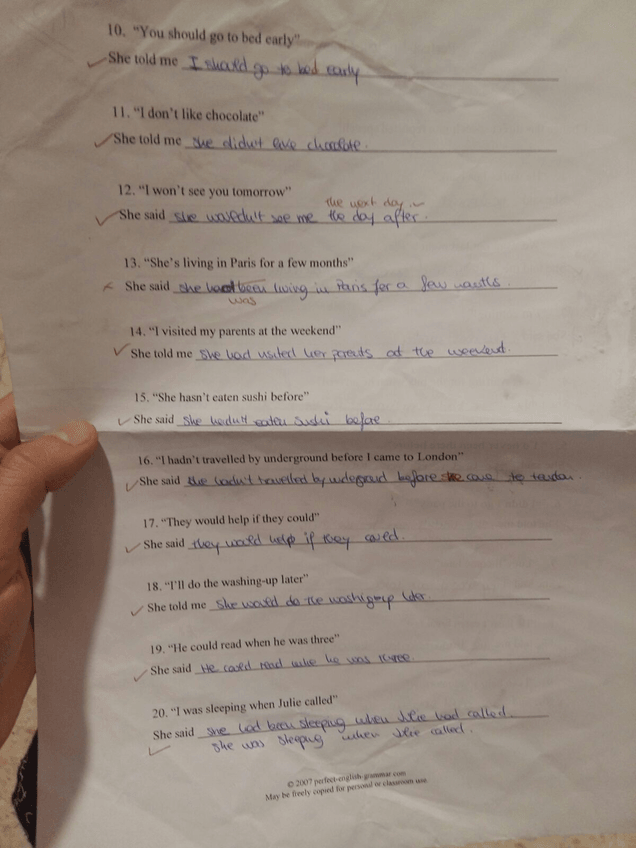 10. "You should go to bed early"
She told me I should go to bed early
11. "I don't like chocolate"
She told me she didn't like chocolate.
12. "I won't see you tomorrow"
the next day
She said she wouldn't see me the day after.
13. "She's living in Paris for a few months"
She said she had been living in Paris for a few months.
was
14. "I visited my parents at the weekend"
She told me She had visited her parents at the weekend.
15. "She hasn't eaten sushi before"
She said She hadn't eaten sushi before
16. "I hadn't travelled by underground before I came to London"
She said She hadn't travelled by undeground before she came to London.
17. "They would help if they could"
She said they would help if they could.
18. "I'll do the washing-up later"
She told me She would do the washing up later.
19. "He could read when he was three"
She said He could read he was three.
20. "I was sleeping when Julie called"
She said She had been sleeping when Julie had called.
She was sleeping when Julie called.
© 2007 perfect-english-grammar.com
May be freely copied for personal or classroom use.